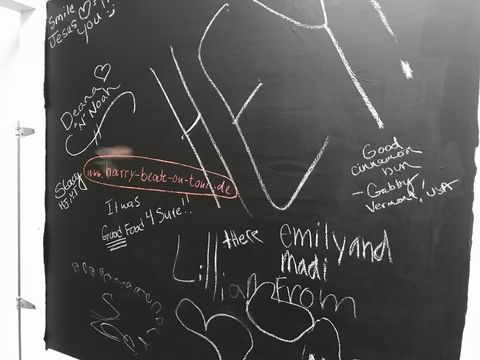 Smile
Jesus ♡'s
You!
HEY!
Deana ♡
'N' Noah
www.harry-beate-on-tour.de
Good
cinnamon
bun
- Gabby
Vermont! USA
Stacy
It was
Good Food 4 Sure!!
Hi there emily and
madi
Lillian From